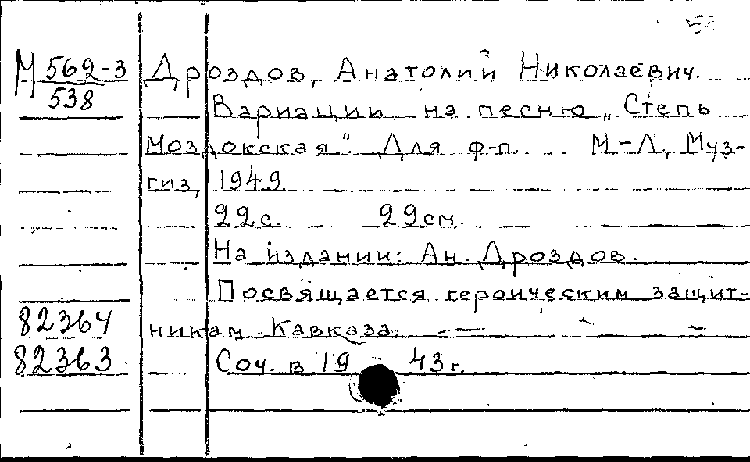 М 562-3 Дроздов, Анатолий Николаевич.
538 Вариации на песню „Степь
Моздокская". Для ф-п. М-Л, Муз-
гиз, 1949
22 с. 29 см.
На издании: Ан. Дроздов.
Посвящается героическим защит-
82364 никам Кавказа. —
82363 Соч. в 19 43 г.